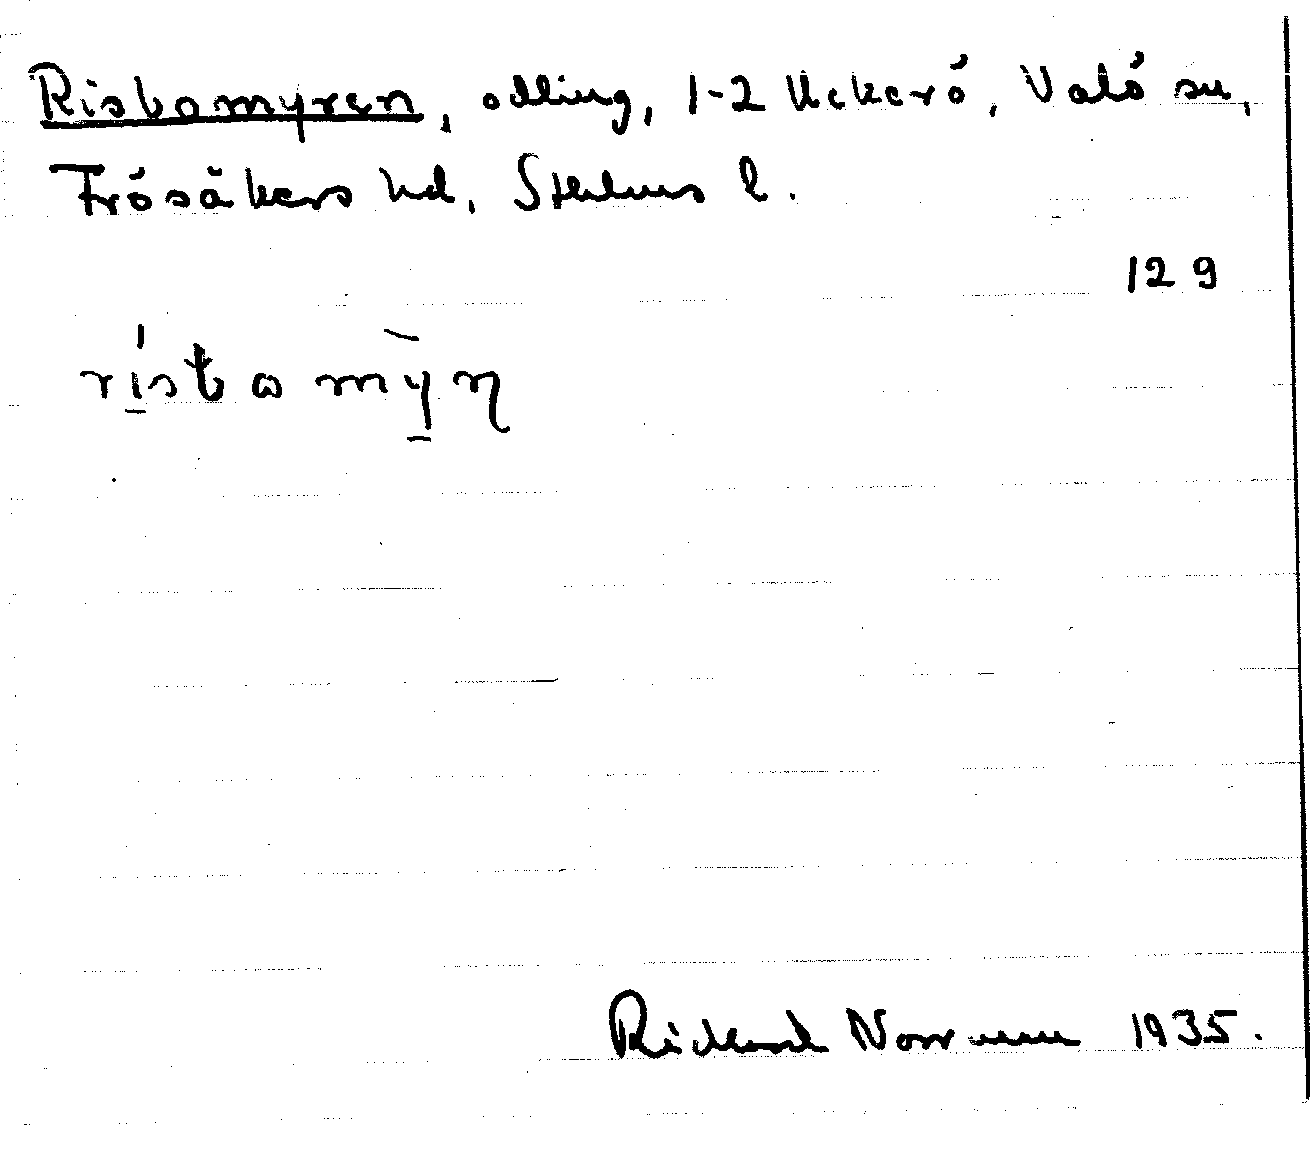 Ristomyren, odling, 1-2 Uckerö, Valö sn,
Frösåkers hd, Sthlms l.
129
rístomỳn
Rickard Norrman 1935.